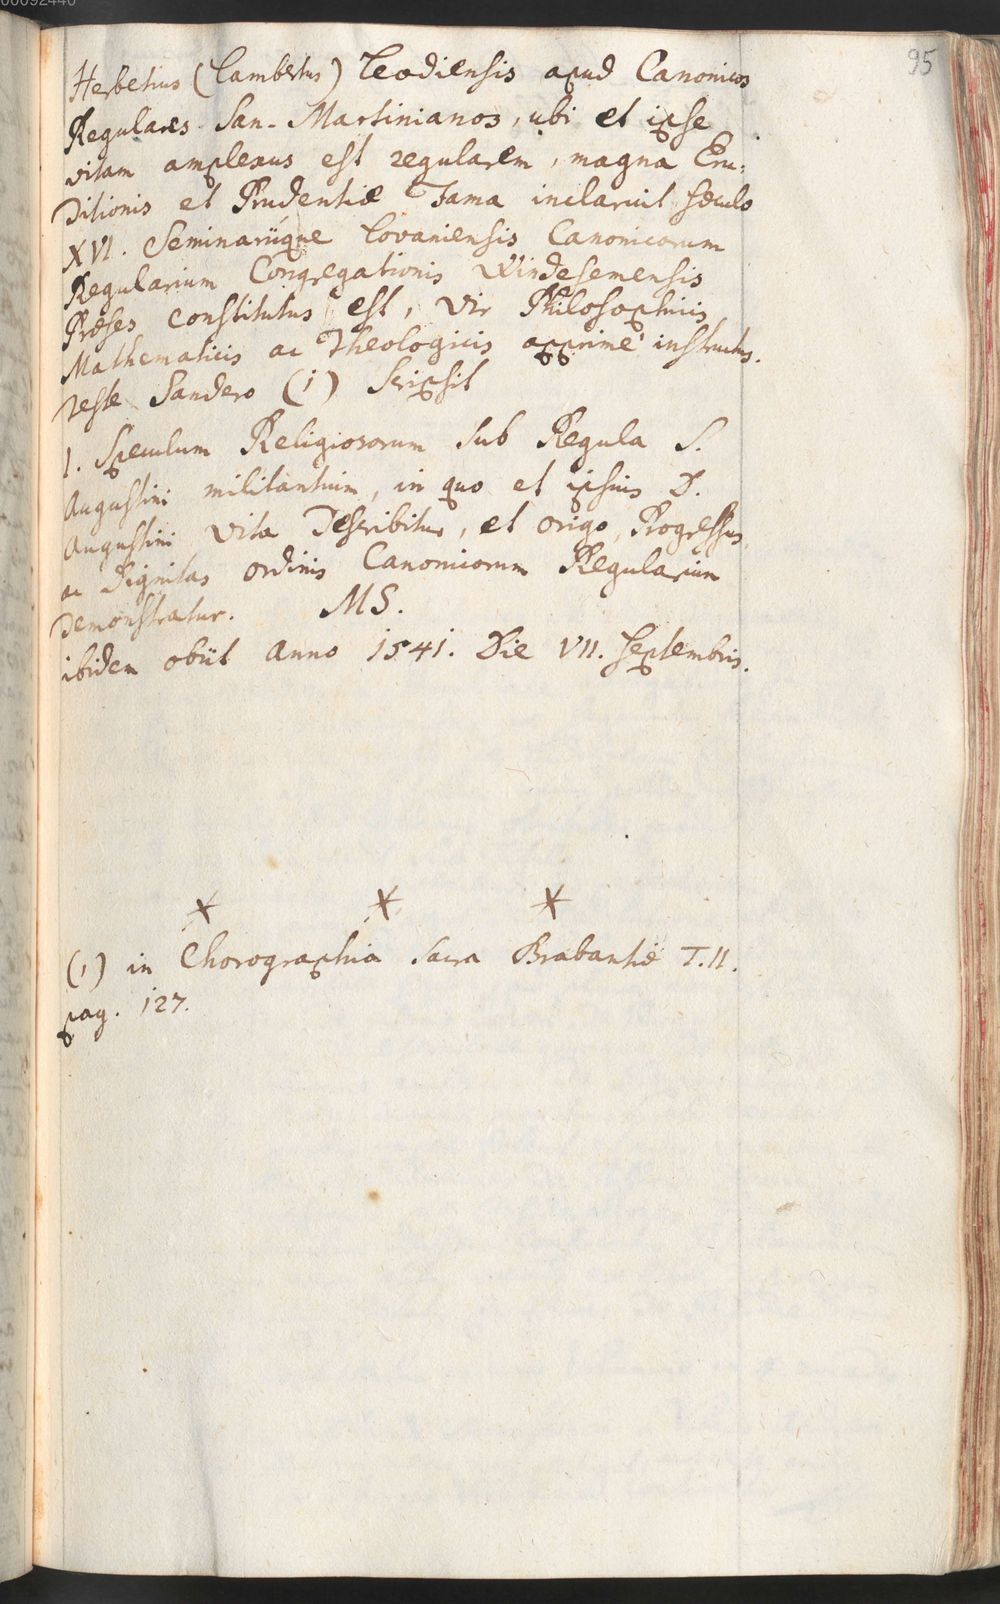 95
Herbetius (Lambertus) Leodiensis apud Canonicos
Regulares San-Martinianos, ubi et ipse
vitam amplexus est regularem, magna Eru:
ditionis et Prudentiæ Fama inclaruit sæculo
XVI. Seminariique Lovaniensis Canonicorum
Regularium Congregationis Windesemensis
Præses constitutus est, vir Philosophicis,
Mathematicis ac Theologicis apprimè instructus.
teste Sandero (1) scripsit
1. Speculum Religiosorum sub Regula S.
Augustini militantium, in quo et ipsius D.
Augustini vita describitur, et origo, Progressus,
ac Dignitas ordinis Canonicorum Regularium
demonstratur. MS.
ibidem obiit Anno 1541. Die VII. septembris.
(1) in Chorographia sacra Brabantiæ T. II.
pag. 127.